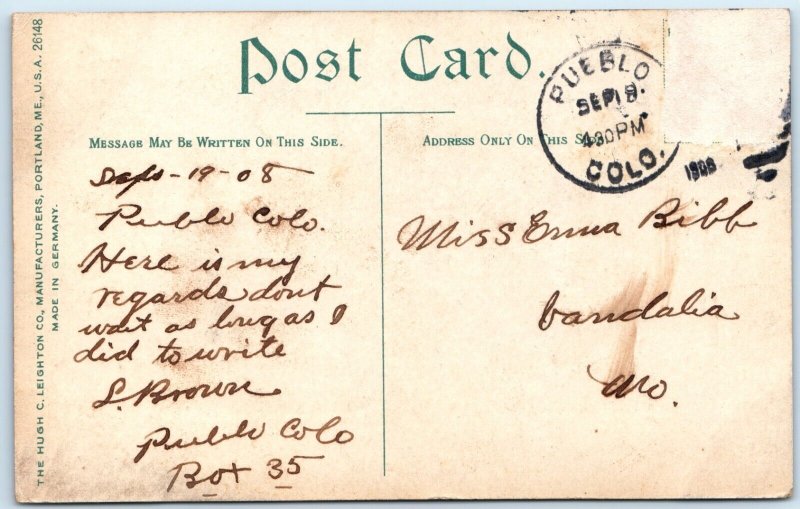 Post Card.
MESSAGE MAY BE WRITTEN ON THIS SIDE.
ADDRESS ONLY ON THIS
THE HUGH C. LEIGHTON CO., MANUFACTURERS, PORTLAND, ME., U.S.A. 26148
MADE IN GERMANY.
PUEBLO
SEP
430PM
COLO.
1908
Sept-19-08
Pueblo Colo.
Here is my
regards dont
wait as long as I
did to write
L. Brown
Pueblo Colo
Box 35
Miss Emma Bibb
Vandalia
Mo.